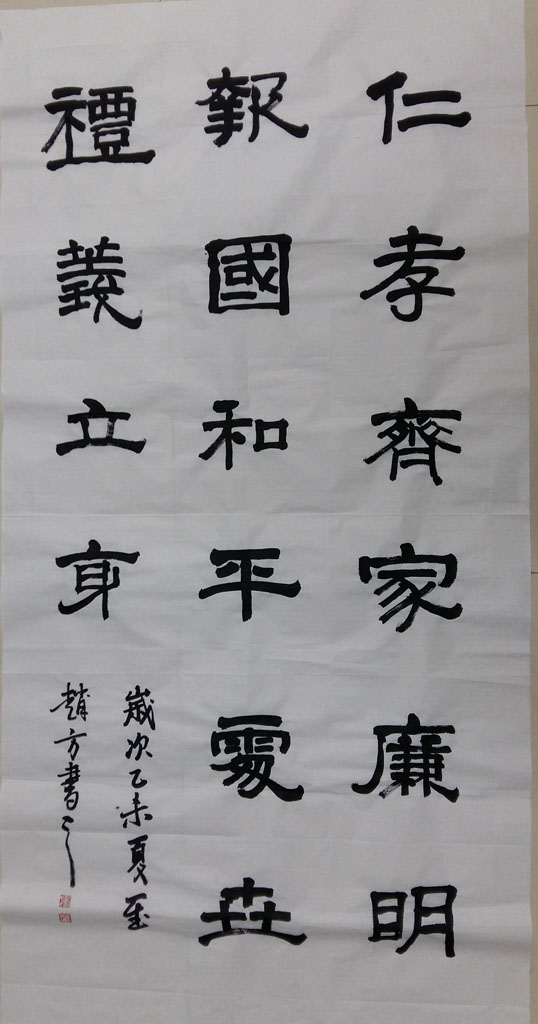 仁孝齊家廉明
報國和平處世
禮義立身
歲次乙未夏至
趙方書之